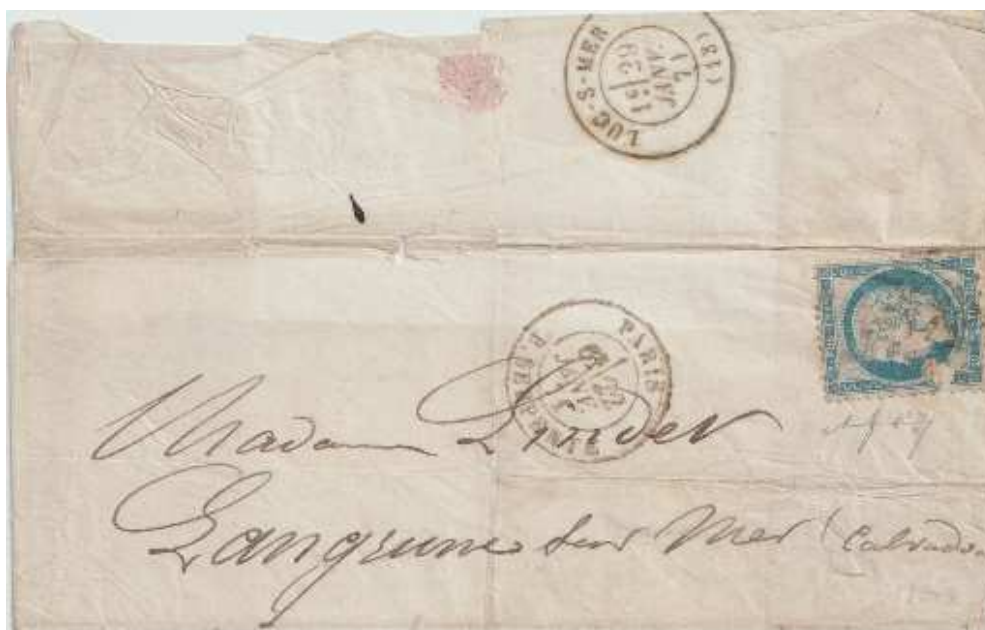 LUC-S-MER (13)
JANV.
71
PARIS
22
Madame Lindet
Langrune Sur Mer (Calvados